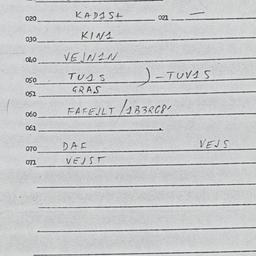 020 KADISL 021 —
030 KIN1
040 VEJN1N
050 TU1S ) - TUV1S
051 GRAS
060 FAFEJLT /1B3RC8'
061
070 DAF VEJS
071 VEJST